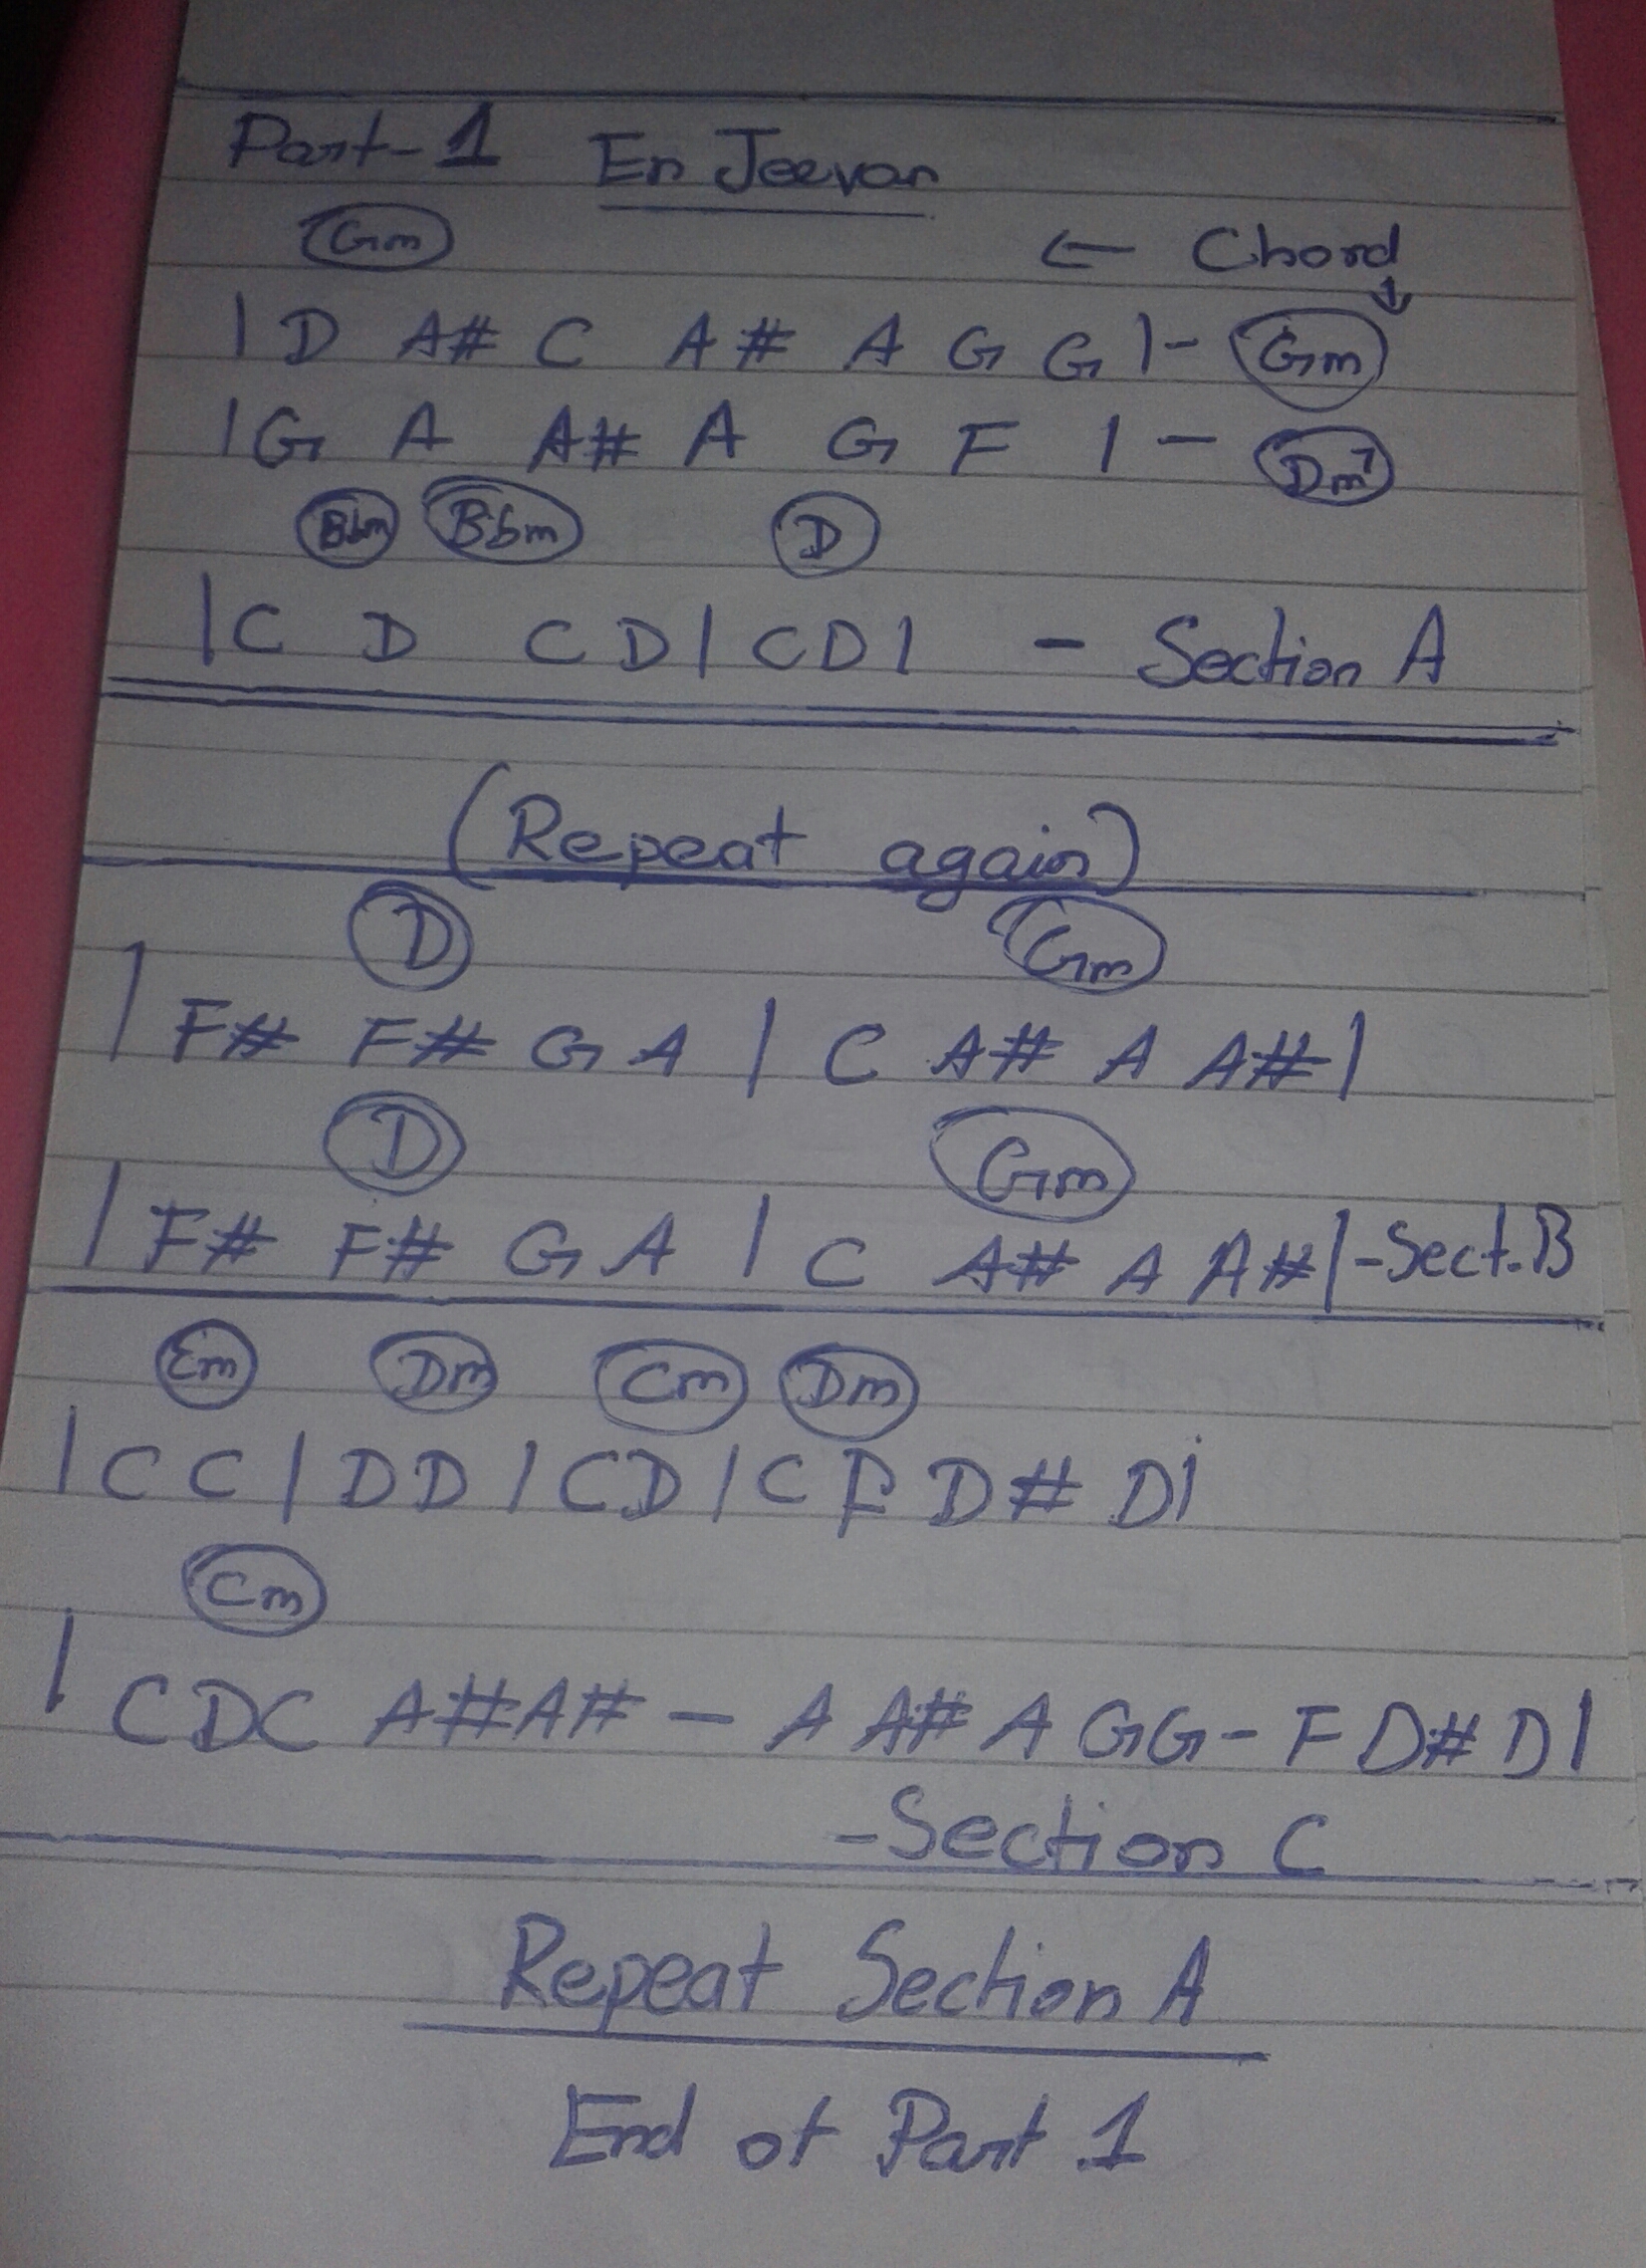 Part-1 En Jeevan
Gm ← Chord ↓
| D A# C A# A G G | - Gm
| G A A# A G F | - Dm7
Bbm Bbm D
| C D C D | C D | - Section A
(Repeat again)
D Gm
| F# F# G A | C A# A A# |
D Gm
| F# F# G A | C A# A A# | - Sect. B
Em Dm Cm Dm
| C C | D D | C D | C F D# D |
Cm
| C D C A# A# - A A# A G G - F D# D |
- Section C
Repeat Section A
End of Part 1